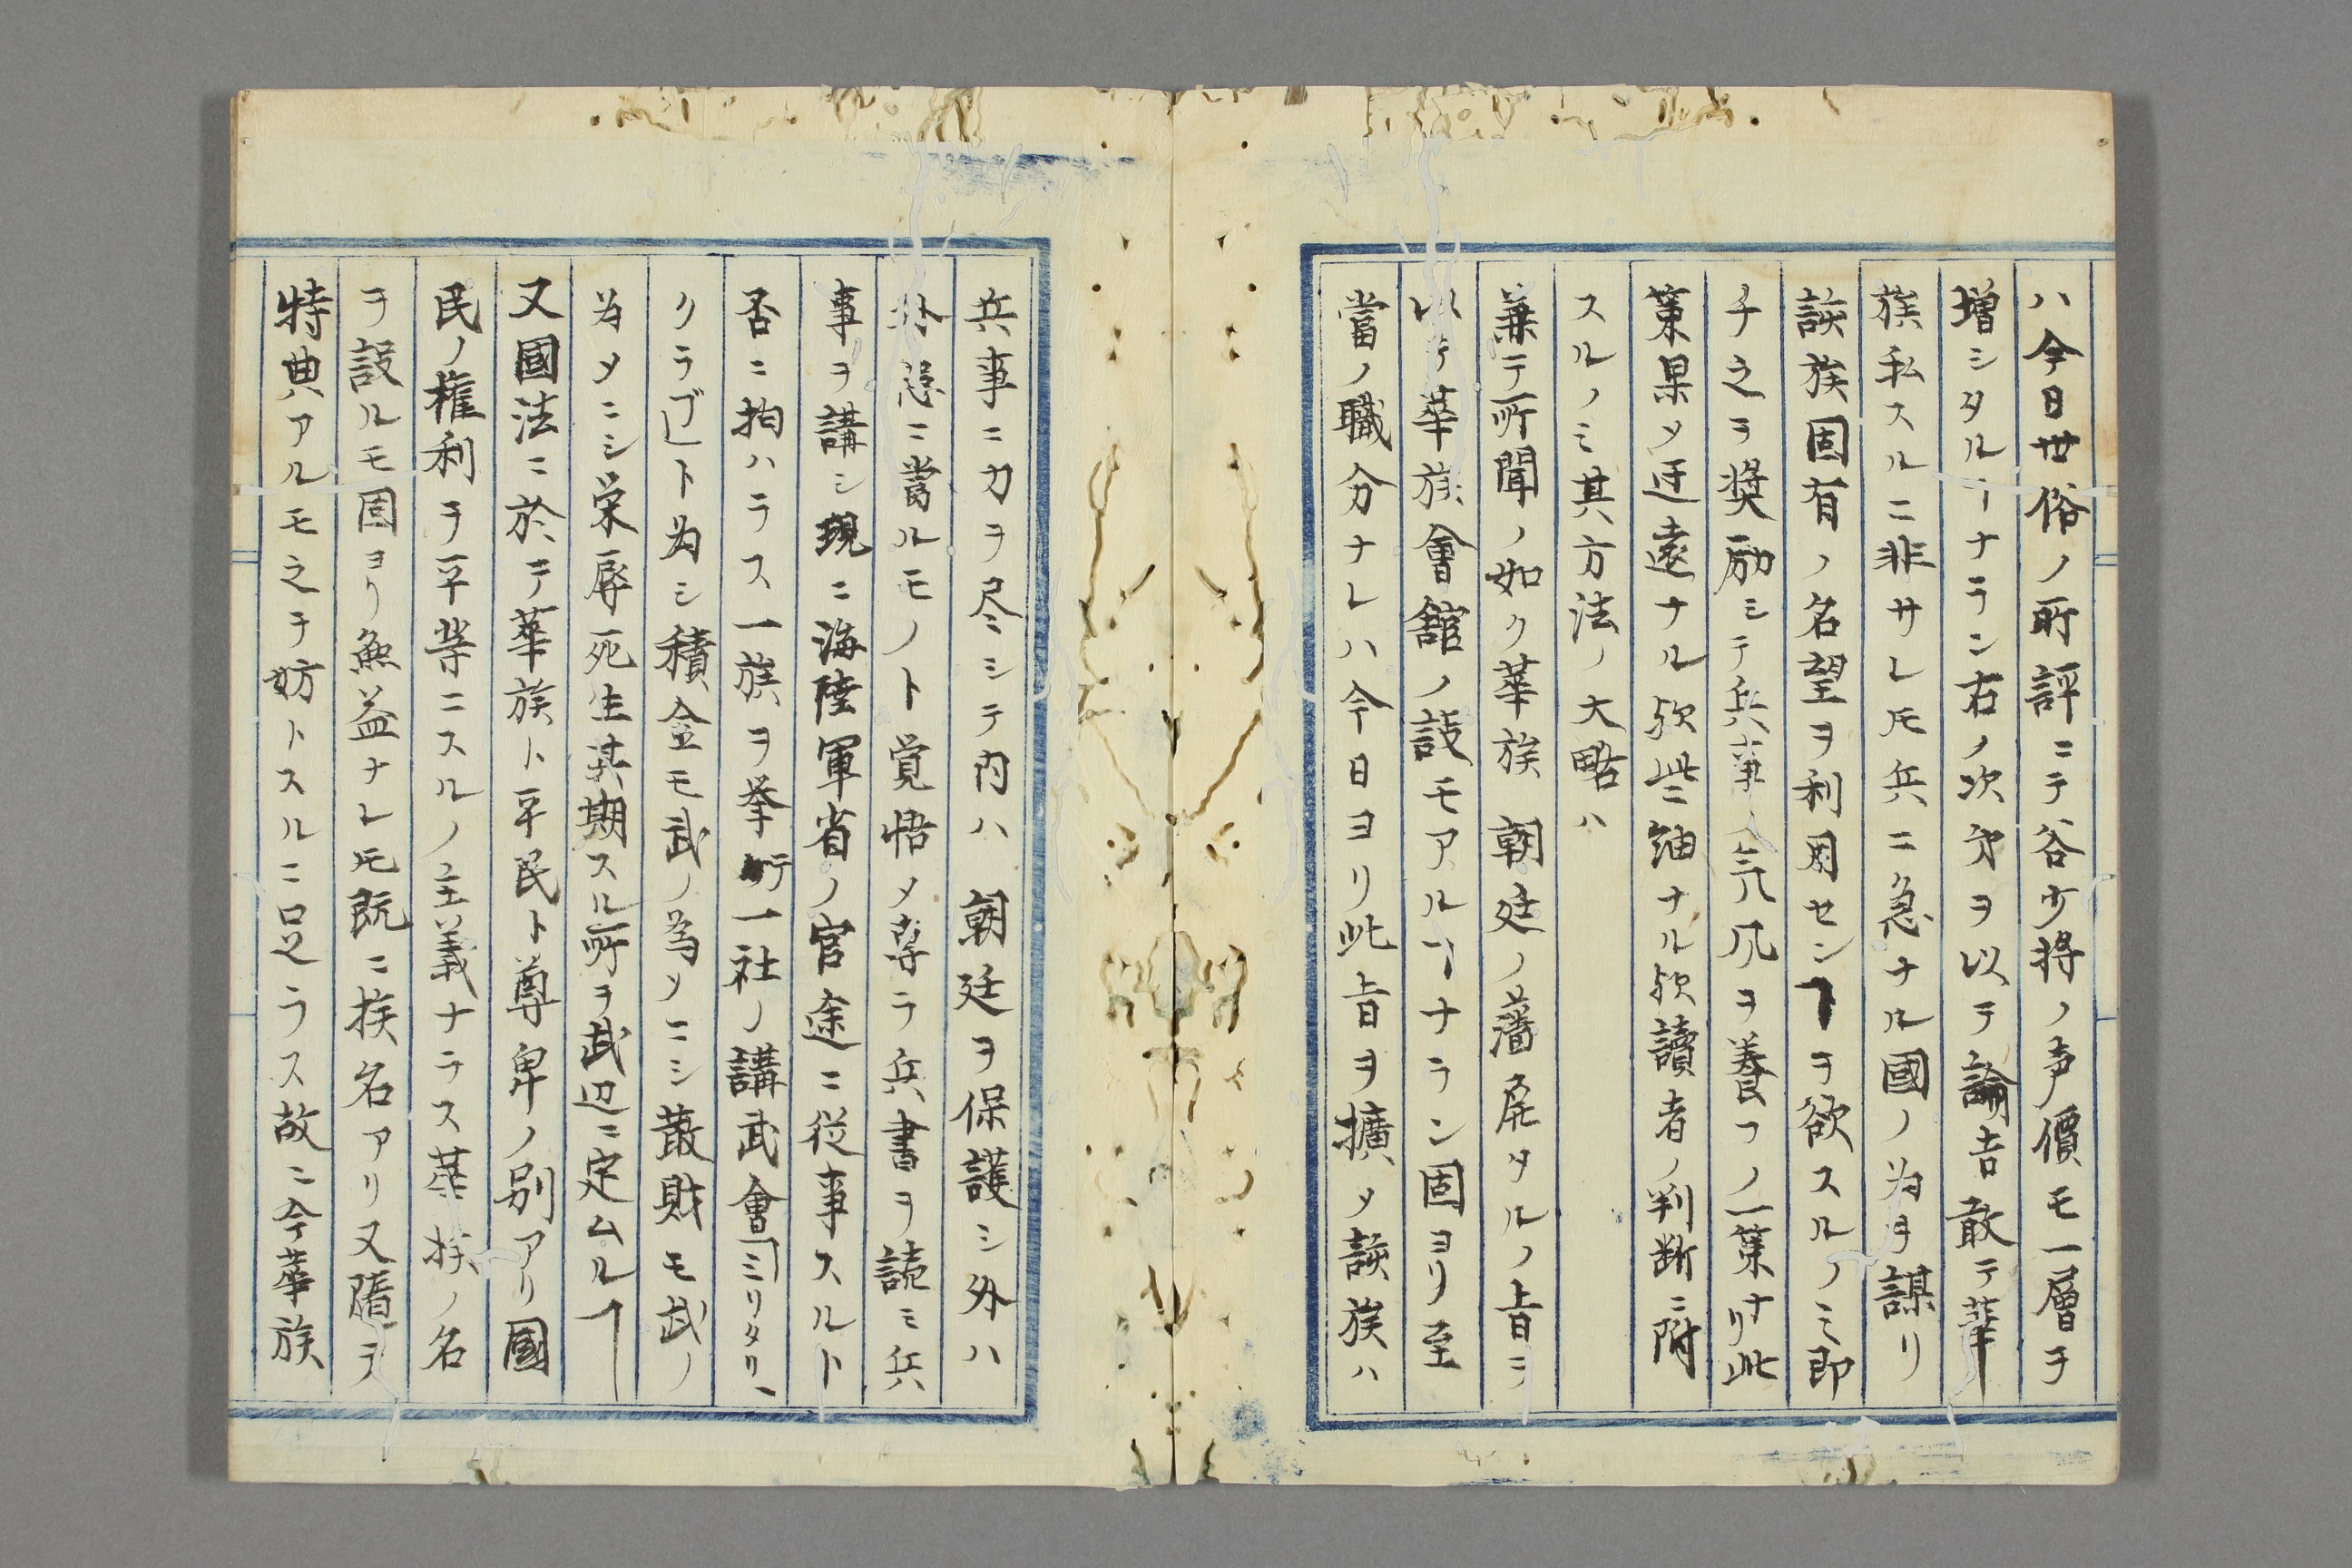 ハ今日世俗ノ所評ニテ谷少将ノ声價モ一層ヲ
増シタルヿナラン右ノ次第ヲ以テ論吉敢テ華
族私スルニ非サレ𪜈兵ニ急ナル國ノ為ヲ謀リ
該族固有ノ名望ヲ利用センヿヲ欲スルノミ即
チ之ヲ奨励シテ兵事ノ気風ヲ養フノ一策ナリ此
策果メ迂遠ナル歟些細ナル歟讀者ノ判断ニ附
スルノミ其方法ノ大略ハ
兼テ所聞ノ如ク華族 朝廷ノ藩屏タルノ旨ヲ
以テ華族會館ノ設モアルヿナラン固ヨリ至
當ノ職分ナレハ今日ヨリ此旨ヲ擴メ該族ハ
兵事ニ力ヲ尽シテ内ハ 朝廷ヲ保護シ外ハ
外患ニ當ルモノト覚悟メ専ラ兵書ヲ読ミ兵
事ヲ講シ現ニ海陸軍省ノ官途ニ従事スルト
否ニ拘ハラス一族ヲ挙テ一社ノ講武會
クラブト為シ積金モ武ノ為メニシ散財モ武ノ
為メニシ栄辱死生其期スル所ヲ武辺ニ定ムルヿ
又國法ニ於テ華族ト平民ト尊卑ノ別アリ國
民ノ権利ヲ平等ニスルノ主義ナラス華族ノ名
ヲ設ルモ固ヨリ無益ナレ𪜈既ニ族名アリ又随テ
特典アルモ之ヲ妨トスルニ足ラス故ニ今華族